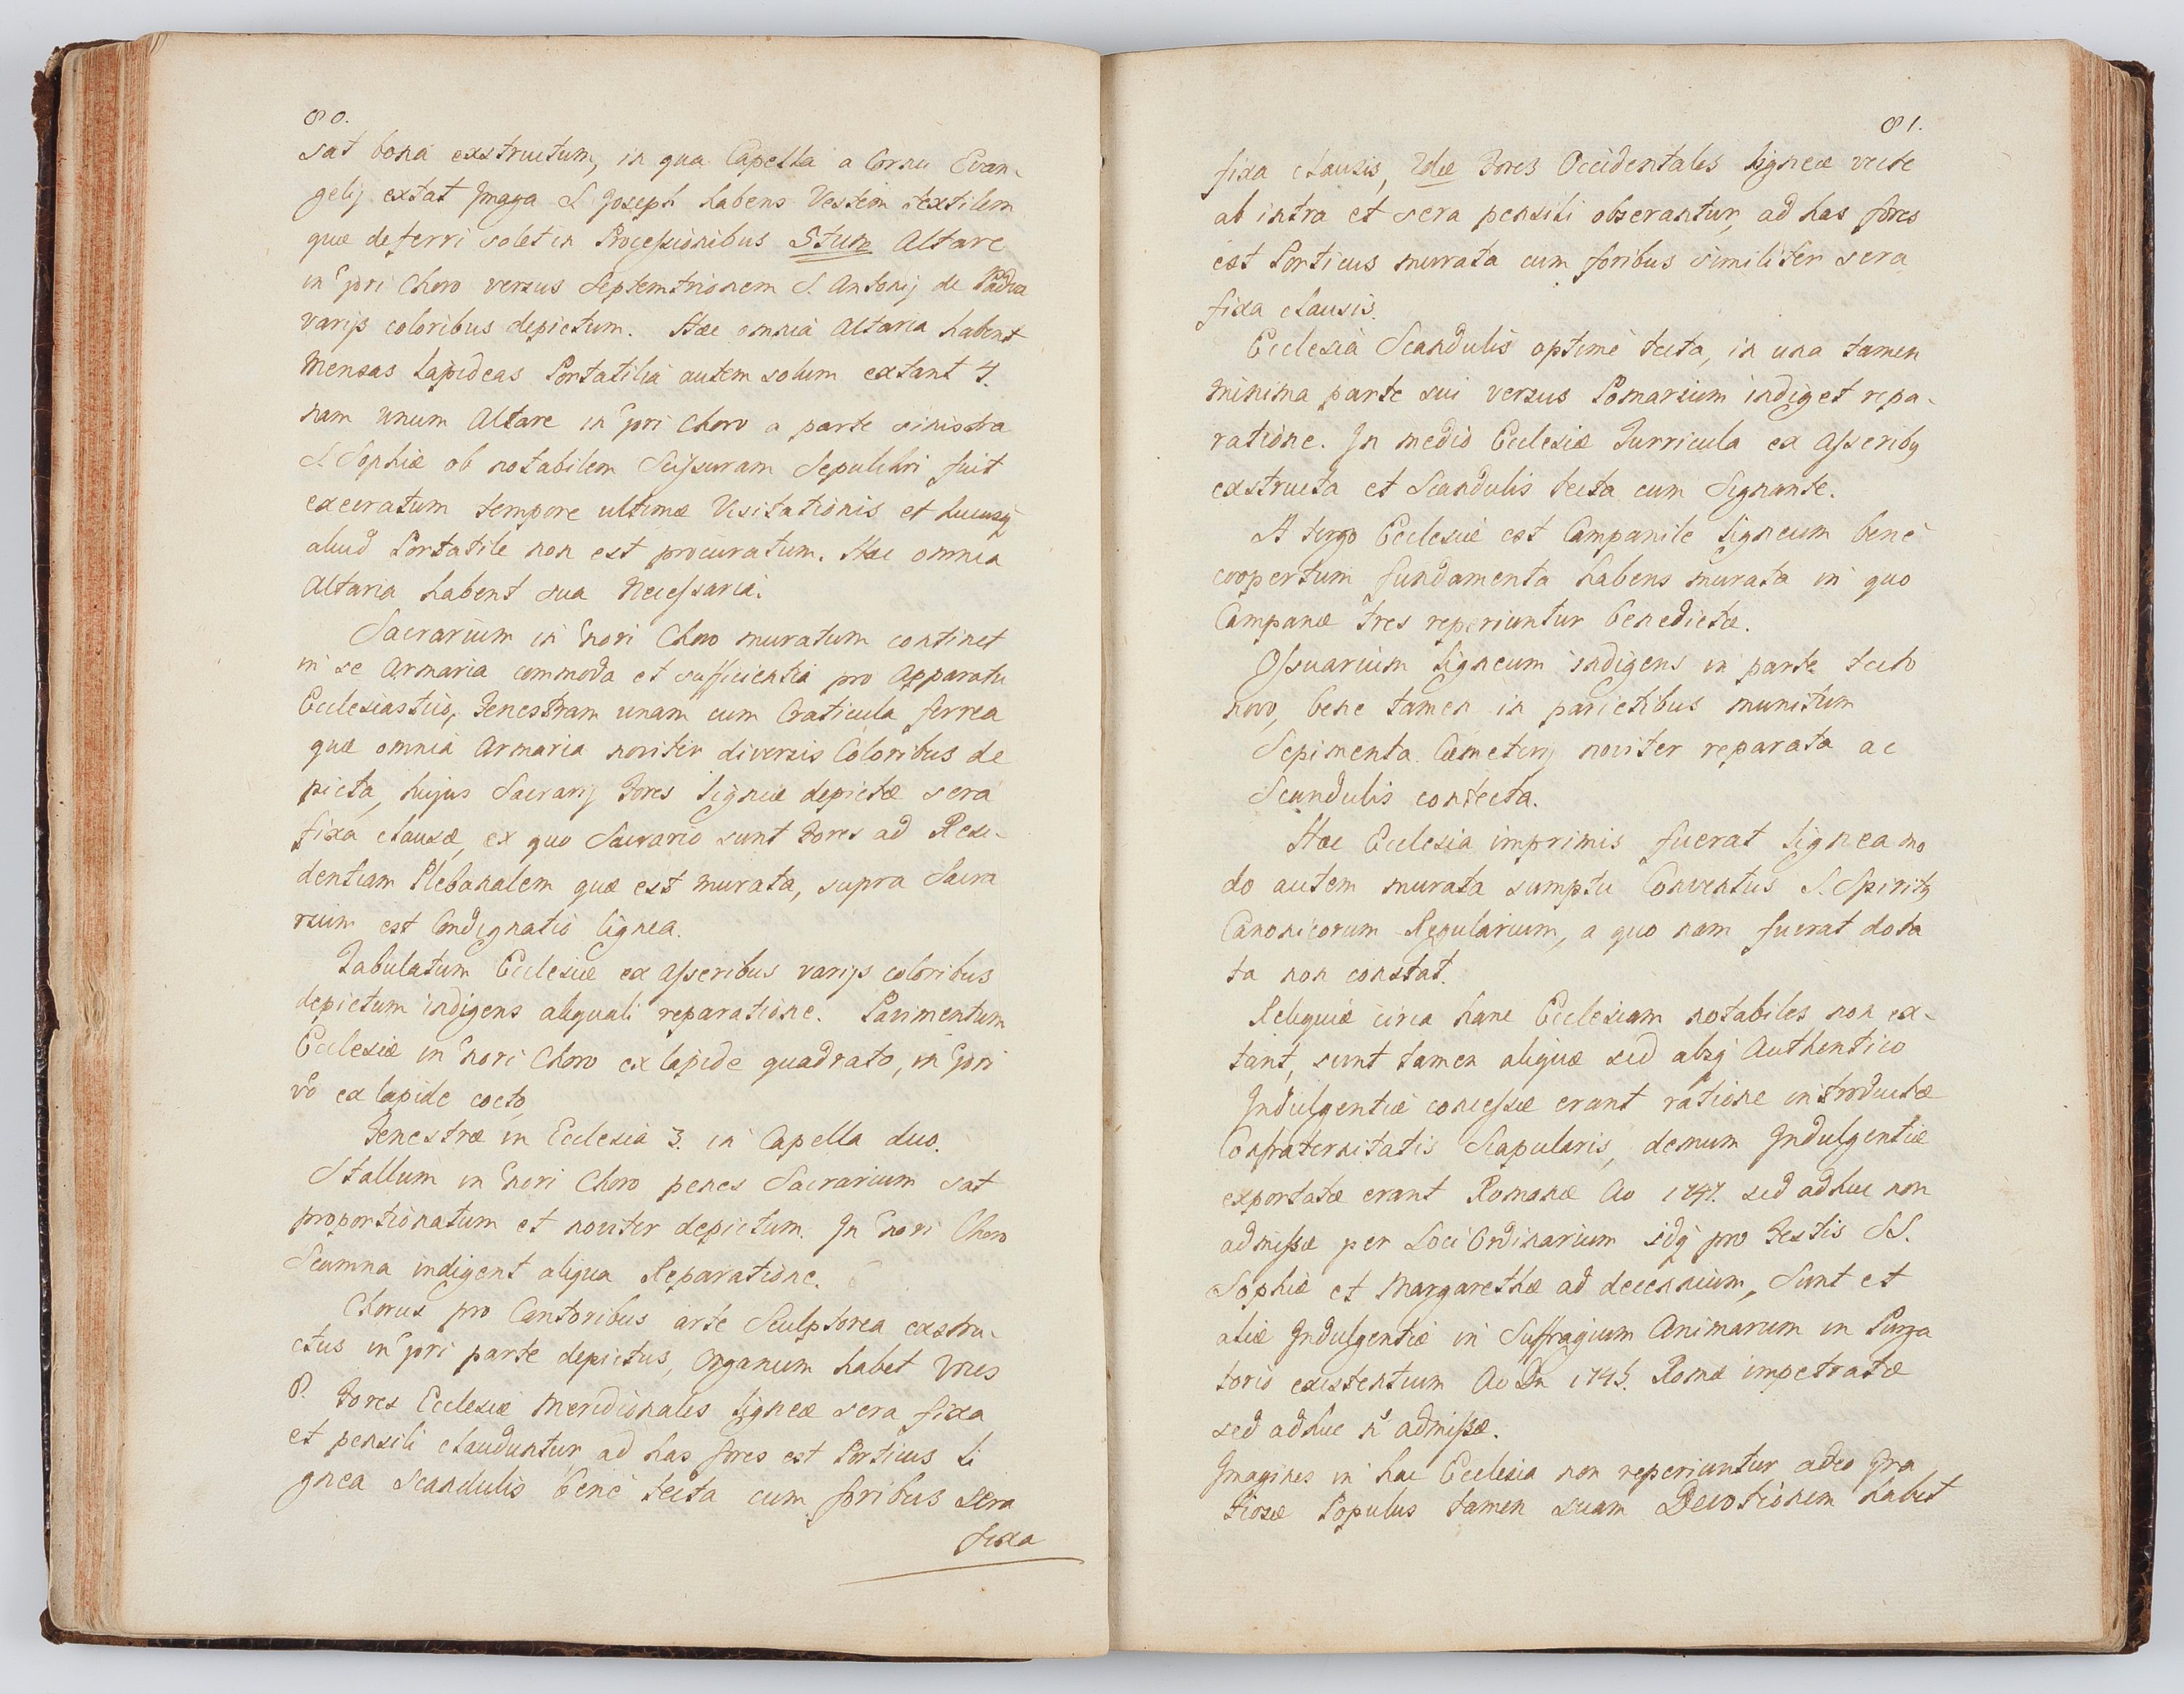 80.
sat bona exstructum, in qua Capella a Cornu Evan-
gelij extat Imago S. Joseph habens Vestem textilem
quæ deferri solet in Processionibus 5tum Altare
in pri Choro versus Septemtrionem S. Antonij de Padua
varijs coloribus depictum. Hæc omnia Altaria habent
Mensas lapideas Portatilia autem solum extant 4.
nam unum Altare in pri Choro a parte sinistra
S. Sophiæ ob notabilem Scissuram Sepulchri fuit
execratum tempore ultimæ Visitationis et hucusq
aliud Portatile non est procuratum. Hæc omnia
Altaria habent sua Necessaria.
Sacrarium in nori Choro muratum continet
in se Armaria commoda et sufficientia pro Apparatu
Ecclesiastico, Fenestram unam cum Craticula ferrea
quæ omnia Armaria noviter diversis Coloribus de
picta, hujus Sacrarij Fores ligneæ depictæ sera
fixa clausæ, ex quo Sacrario sunt Fores ad Resi-
dentiam Plebanalem quæ est murata, supra Sacra
rium est Condignatio lignea.
Tabulatum Ecclesiæ ex asseribus varijs coloribus
depictum indigens aliquali reparatione. Pavimentum
Ecclesiæ in nori Choro ex lapide quadrato, in pri
vo ex lapide cocto
Fenestræ in Ecclesia 3. in Capella duo.
Stallum in nori Choro penes Sacrarium sat
proportionatum et noviter depictum. In nori Choro
Scamna indigent aliqua Reparatione.
Chorus pro Cantoribus arte Sculptorea exstru-
ctus in pri parte depictus, Organum habet Voces
8. Fores Ecclesiæ Meridionales ligneæ sera fixa
et pensili clauduntur ad has fores est Porticus li
gnea Scandulis bene tecta cum foribus sera
fixa
81.
fixa clausis, 2dæ Fores Occidentales ligneæ vecte
ab intra et sera pensili obserantur, ad has fores
est Porticus murata cum foribus similiter sera
fixa clausis.
Ecclesia Scandulis optime tecta, in una tamen
minima parte sui versus Pomarium indiget repa-
ratione. In medio Ecclesiæ Turricula ex Asseribq
exstructa et Scandulis tecta cum Signante.
A tergo Ecclesiæ est Campanile ligneum bene
coopertum fundamenta habens murata in quo
Campanæ tres reperiuntur benedictæ.
Ossuarium ligneum indigens in parte tecto
novo, bene tamen in parietibus munitum
Sepimenta Cæmeterij noviter reparata ac
Scandulis contecta.
Hæc Ecclesia imprimis fuerat lignea mo
do autem murata sumptu Conventus S. Spiritq
Canonicorum Regularium, a quo nam fuerat dota
ta non constat.
Reliquiæ circa hanc Ecclesiam notabiles non ex-
tant, sunt tamen aliquæ sed absq Authentico
Indulgentiæ concessæ erant ratione introductæ
Confraternitatis Scapularis, demum Indulgentiæ
exportatæ erant Romanæ Ao 1747. sed adhuc non
admissæ per Loci Ordinarium idq pro Festis SS.
Sophiæ et Margarethæ ad decennium, Sunt et
aliæ Indulgentiæ in Suffragium Animarum in Purga
torio existentium Ao Dn 1745. Romæ impetratæ
sed adhuc n admissæ.
Imagines in hac Ecclesia non reperiuntur adeo Gra
tiosæ Populus tamen suam Devotionem habet